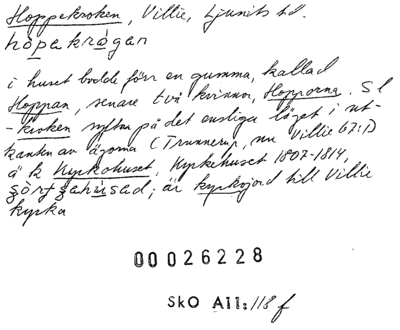 Hoppekroken, Villie, Ljunits hd.
hópakrógan
i huset bodde förr en gumma, kallad
Hoppan, senare två kvinnor, Hopporna. Sl
-kroken syftar på det ensliga läget i ut-
kanten av ägorna (Trunnerup, nu Villie 67:1)
ä k Kyrkohuset, Kyrkehuset 1807-1814,
är kyrkojord till Villie
kyrka
00026228
SkO AII: 118 f